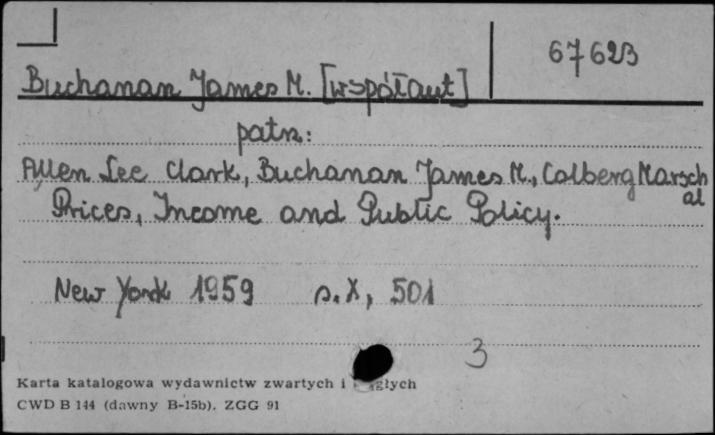 67623
Buchanan James M. [współaut]
patrz:
Allen Lee Clark, Buchanan James M., Colberg Marsch
al
Prices, Income and Public Policy.
New York 1959 s. X, 501
3
Karta katalogowa wydawnictw zwartych i
CWD B 144 (dawny B-15b). ZGG 91